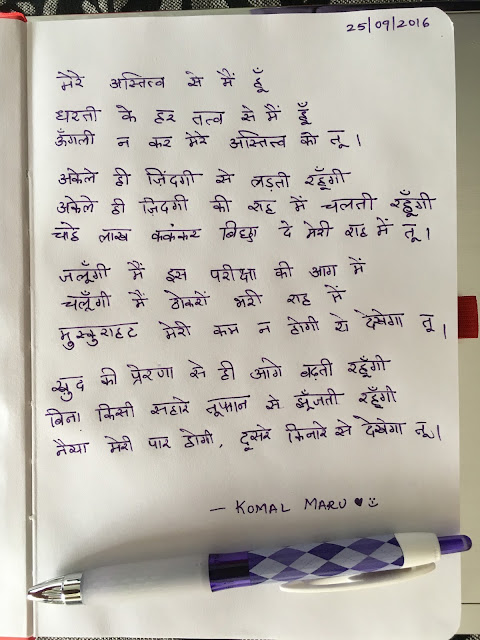 25/09/2016
मेरे अस्तित्व से मैं हूँ
धरती के हर तत्व से मैं हूँ
ऊँगली न कर मेरे अस्तित्व को तू।
अकेले ही ज़िंदगी से लड़ती रहूँगी
अकेले ही ज़िदगी की राह में चलती रहूँगी
चाहे लाख कंकंकर बिछा दे मेरी राह में तू।
जलूँगी मैं इस परीक्षा की आग में
चलूँगी मैं ठोकरों भरी राह में
मुस्कुराहट मेरी कम न होगी ये देखेगा तू।
खुद की प्रेरणा से ही आगे बढ़ती रहूँगी
बिना किसी सहारे तूफान से झूँजती रहूँगी
नैय्या मेरी पार होगी, दूसरे किनारे से देखेगा तू।
— KOMAL MARU ♥☺